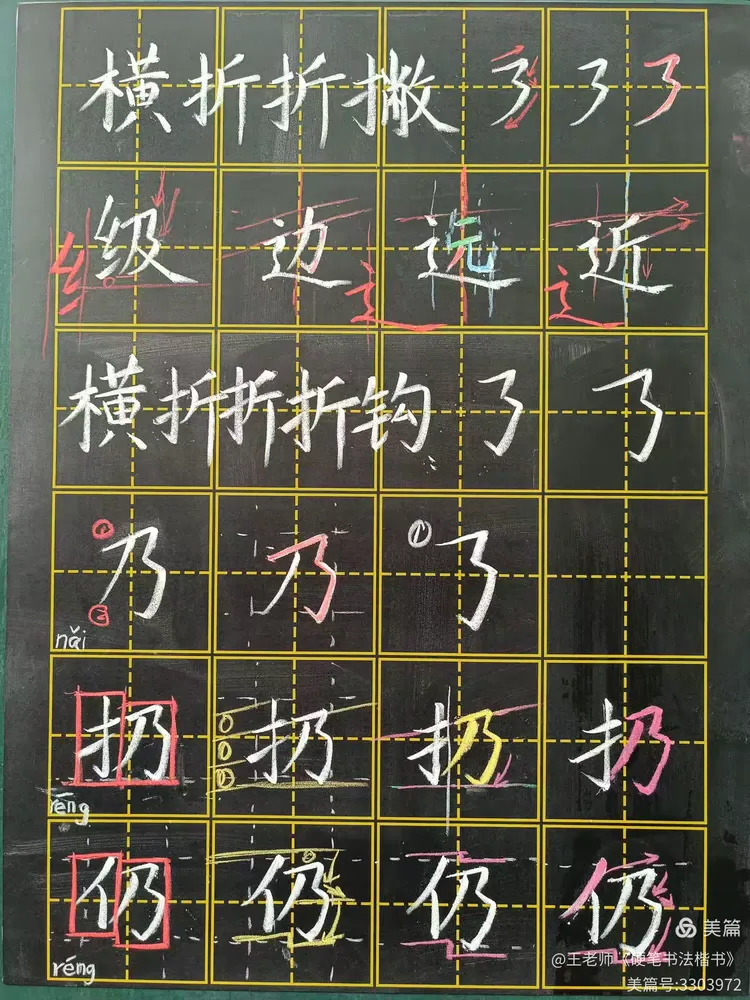 横折折撇 ㇋ ㇋ ㇋
级 边 远 近
辶 辶
横折折折钩 ㇡ ㇡
① 乃 乃 ① ㇡
②
nǎi
扔 扔 扔 扔
rēng
仍 仍 仍 仍
réng
美篇
@王老师《硬笔书法楷书》
美篇号:3303972